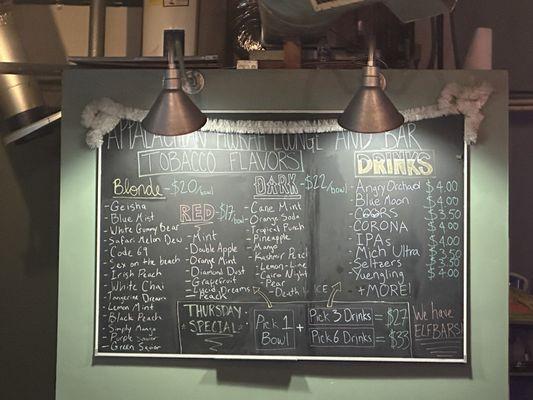 APPALACHIAN HOOKAH LOUNGE AND BAR
TOBACCO FLAVORS
Blonde - $20/bowl
- Geisha
- Blue Mint
- White Gummy Bear
- Safari Melon Dew
- Code 69
- Sex on the beach
- Irish Peach
- White Chai
- Tangerine Dream
- Lemon Mint
- Black Peach
- Simply Mango
- Purple Savior
- Green Savior
RED - $17/bowl
- Mint
- Double Apple
- Orange Mint
- Diamond Dust
- Grapefruit
- Lucid Dreams
- Peach
DARK - $22/bowl
- Cane Mint
- Orange Soda
- Tropical Punch
- Pineapple
- Mango
- Kashmir Peach
- Lemon-Lime
- Cairo Night
- Pear
- Death
DRINKS
- Angry Orchard $4.00
- Blue Moon $4.00
- COORS $3.50
- CORONA $4.00
- IPAs $4.00
- Mich Ultra
- Seltzers
- Yuengling
+ MORE!
THURSDAY SPECIAL
Pick 1 Bowl + Pick 3 Drinks = $27
Pick 6 Drinks = $33
We have
ELFBARS!